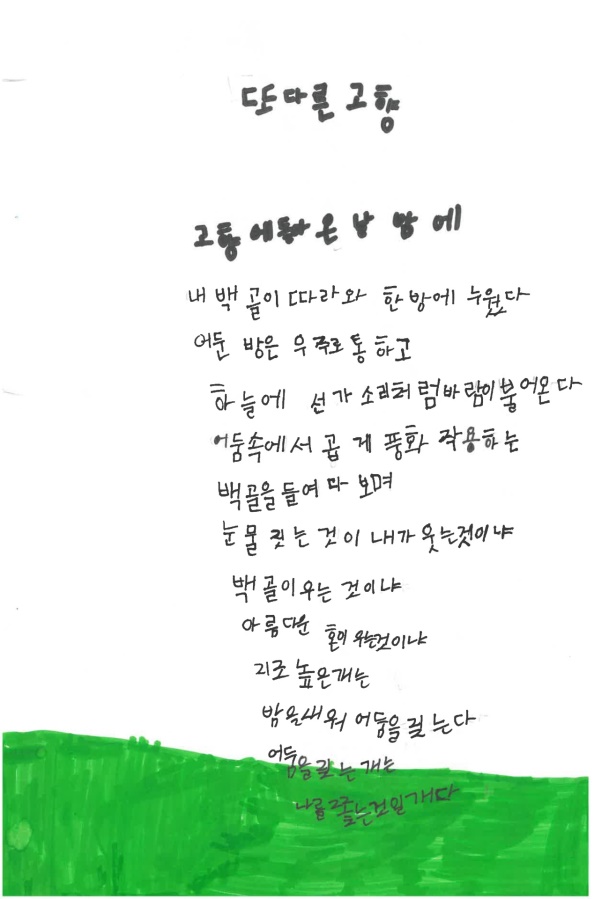 또다른 고향
고향에 돌아온 날 밤에
내 백골이 따라와 한방에 누웠다
어둔 방은 우주로 통하고
하늘에 선가 소리처럼바람이불어온다
어둠속에서 곱게 풍화 작용하는
백골을들여다보며
눈물 짓는 것이 내가 웃는것이냐
백골이우는 것이냐
아름다운 혼이 우는것이냐
지조 높은개는
밤을새워 어둠을 짖는다
어둠을 짖는 개는
나를 쫓는것일게다